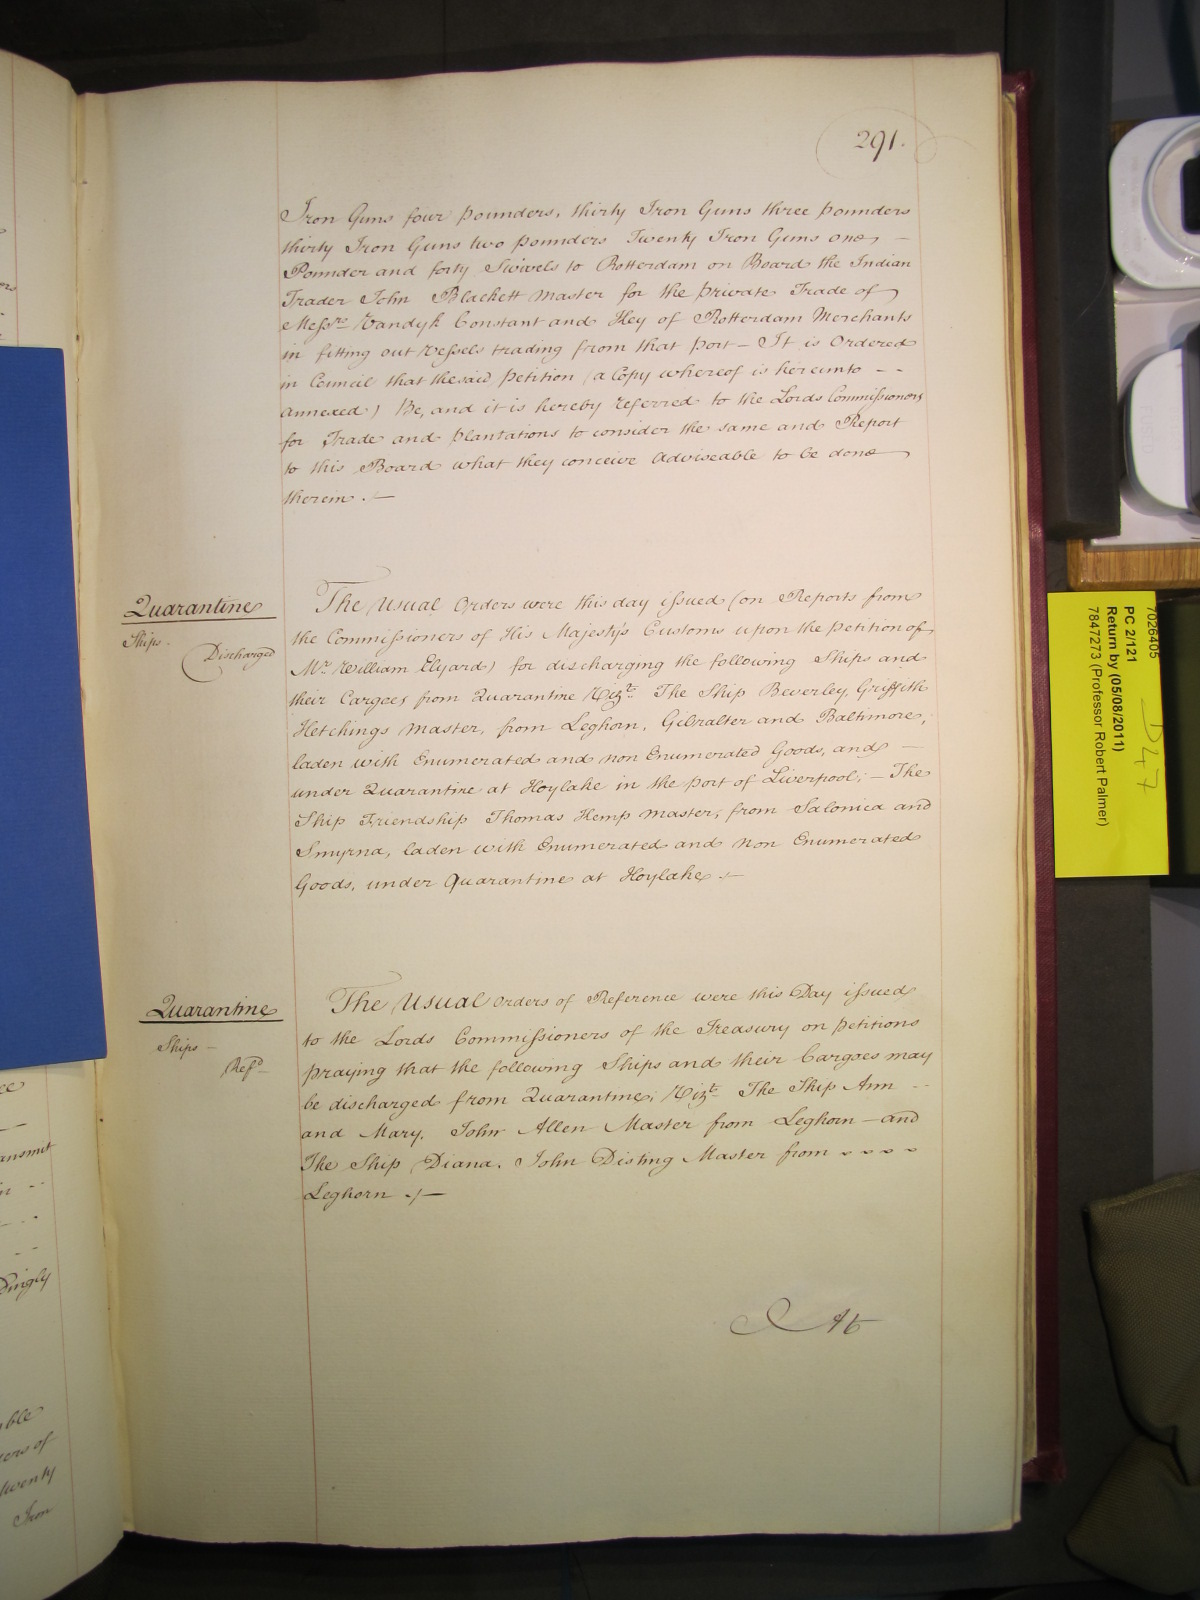 291.
Iron Guns four pounders, thirty Iron Guns three pounders
thirty Iron Guns two pounders Twenty Iron Guns one
Pounder and forty Swivels to Rotterdam on Board the Indian
Trader John Blackett Master for the private Trade of
Messrs. Vandyk Constant and Hey of Rotterdam Merchants
in fitting out Vessels trading from that port – It is Ordered
in Council that the said Petition (a Copy whereof is hereunto - -
annexed) Be, and it is hereby referred to the Lords Commissioners
for Trade and Plantations to consider the same and Report
to this Board what they conceive Adviseable to be done
therein.
Quarantine
Ships.
Discharged
The Usual Orders were this day issued (on Reports from
the Commissioners of His Majesty's Customs upon the Petition of
Mr. William Elyard) for discharging the following Ships and
their Cargoes from Quarantine Vizt. The Ship Beverley, Griffith
Hetchings Master, from Leghorn, Gibralter and Baltimore,
laden with Enumerated and non Enumerated Goods, and –
under Quarantine at Hoylake in the port of Liverpool; – The
Ship Friendship Thomas Hemp Master, from Salonica and
Smyrna, laden with Enumerated and non Enumerated
Goods, under Quarantine at Hoylake
Quarantine
Ships –
Refd.
The Usual Orders of Reference were this Day issued
to the Lords Commissioners of the Treasury on Petitions
praying that the following Ships and their Cargoes may
be discharged from Quarantine, Vizt. The Ship Ann - -
and Mary, John Allen Master from Leghorn – and
The Ship Diana, John Disting Master from
Leghorn
At
7026405
PC 2/121
Return by (05/08/2011)
7847273 (Professor Robert Palmer)
D47
ansmit
dingly
able
ers of
twenty
Iron